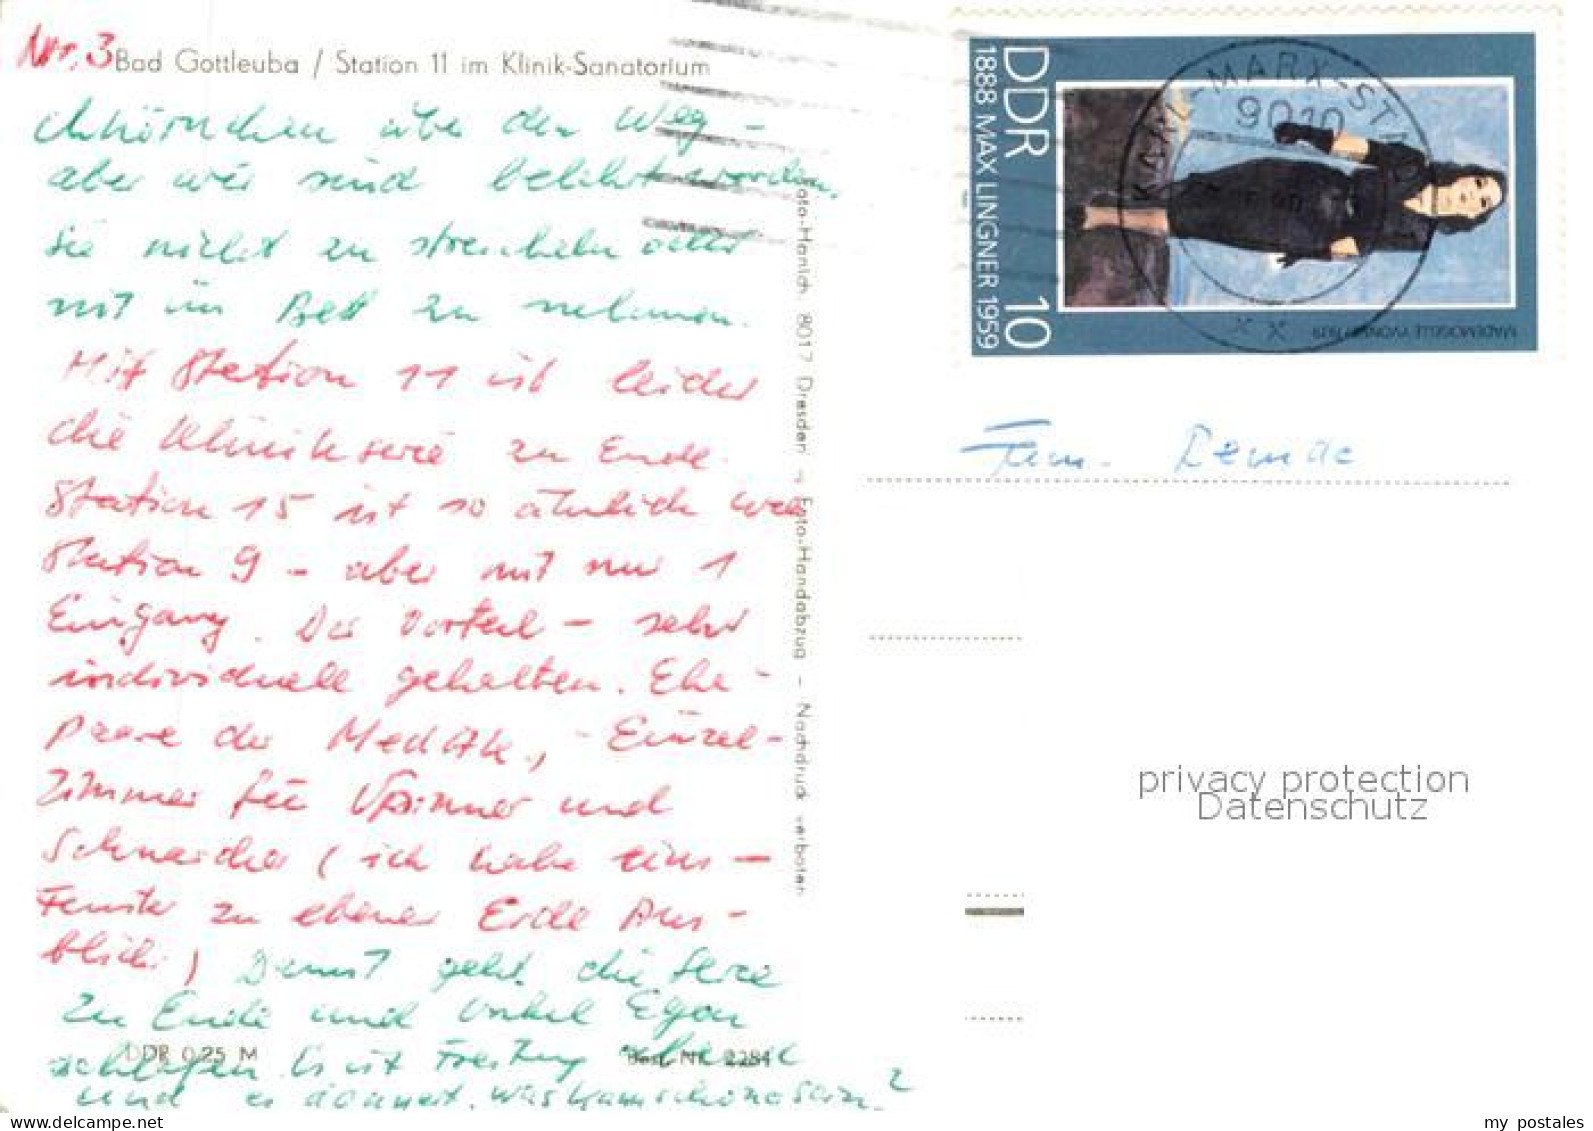 Nr. 3
Bad Gottleuba / Station 11 im Klinik-Sanatorium
über den Weg -
aber wir sind belehrt worden,
sie nicht zu streicheln oder
mit ins Bett zu nehmen.
Mit Station 11 ist leider
die Klinikserie zu Ende.
Station 15 ist so ähnlich wie
Station 9 - aber mit nur 1
Eingang. Der Vorteil - sehr
individuell gehalten. Ehe-
paare der Med Ak., Einzel-
zimmer für und
Schnarcher (ich habe eins -
Fenster zu ebener Erde Aus-
blick.) Damit geht die Serie
zu Ende und Onkel Egon
schlafen. Es ist Freitag abend
und es donnert. was kann schöner sein?
DDR 0,25 M
Best.-Nr. 2284
Foto-Hanich, 8017 Dresden - Foto-Handabzug - Nachdruck verboten
DDR 10
1888 MAX LINGNER 1959
MADEMOISELLE YVONNE 1939
KARL-MARX-STADT
9010
XX
Fam. Demde
privacy protection
Datenschutz
my postales
www.delcampe.net